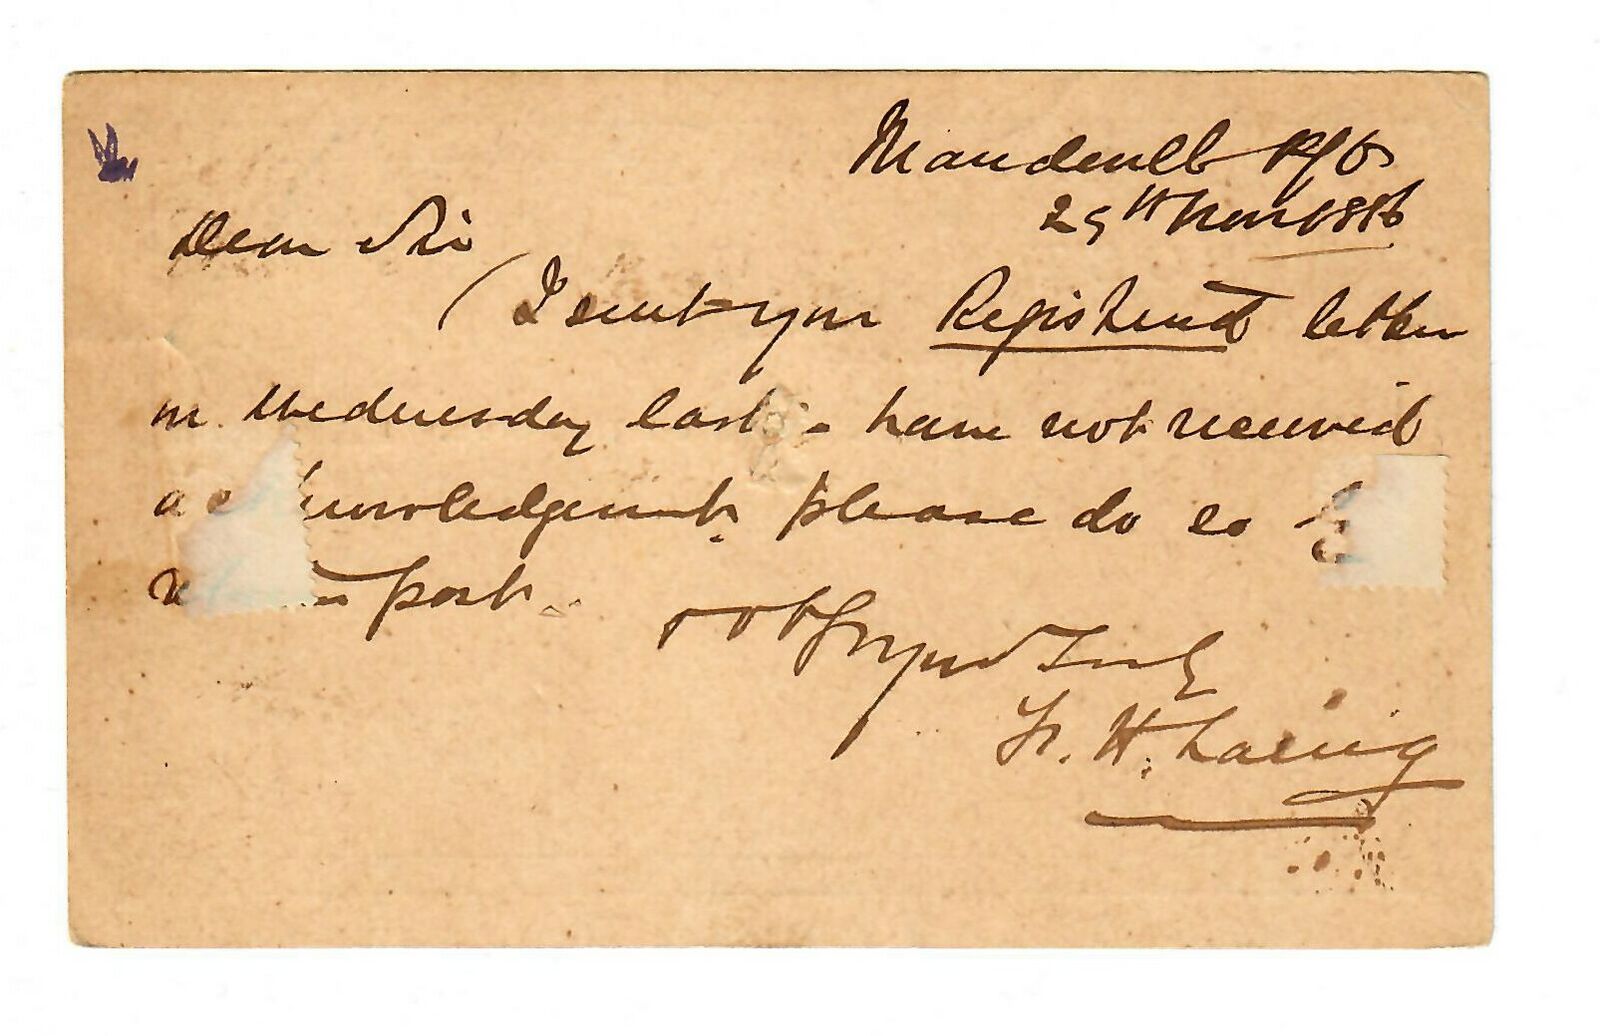 Mandeville P/O
29th Nov 1886
Dear Sir
I sent you Registered letter
on Wednesday last - have not received
acknowledgement, please do so
post.
yours Truly
H. Laing